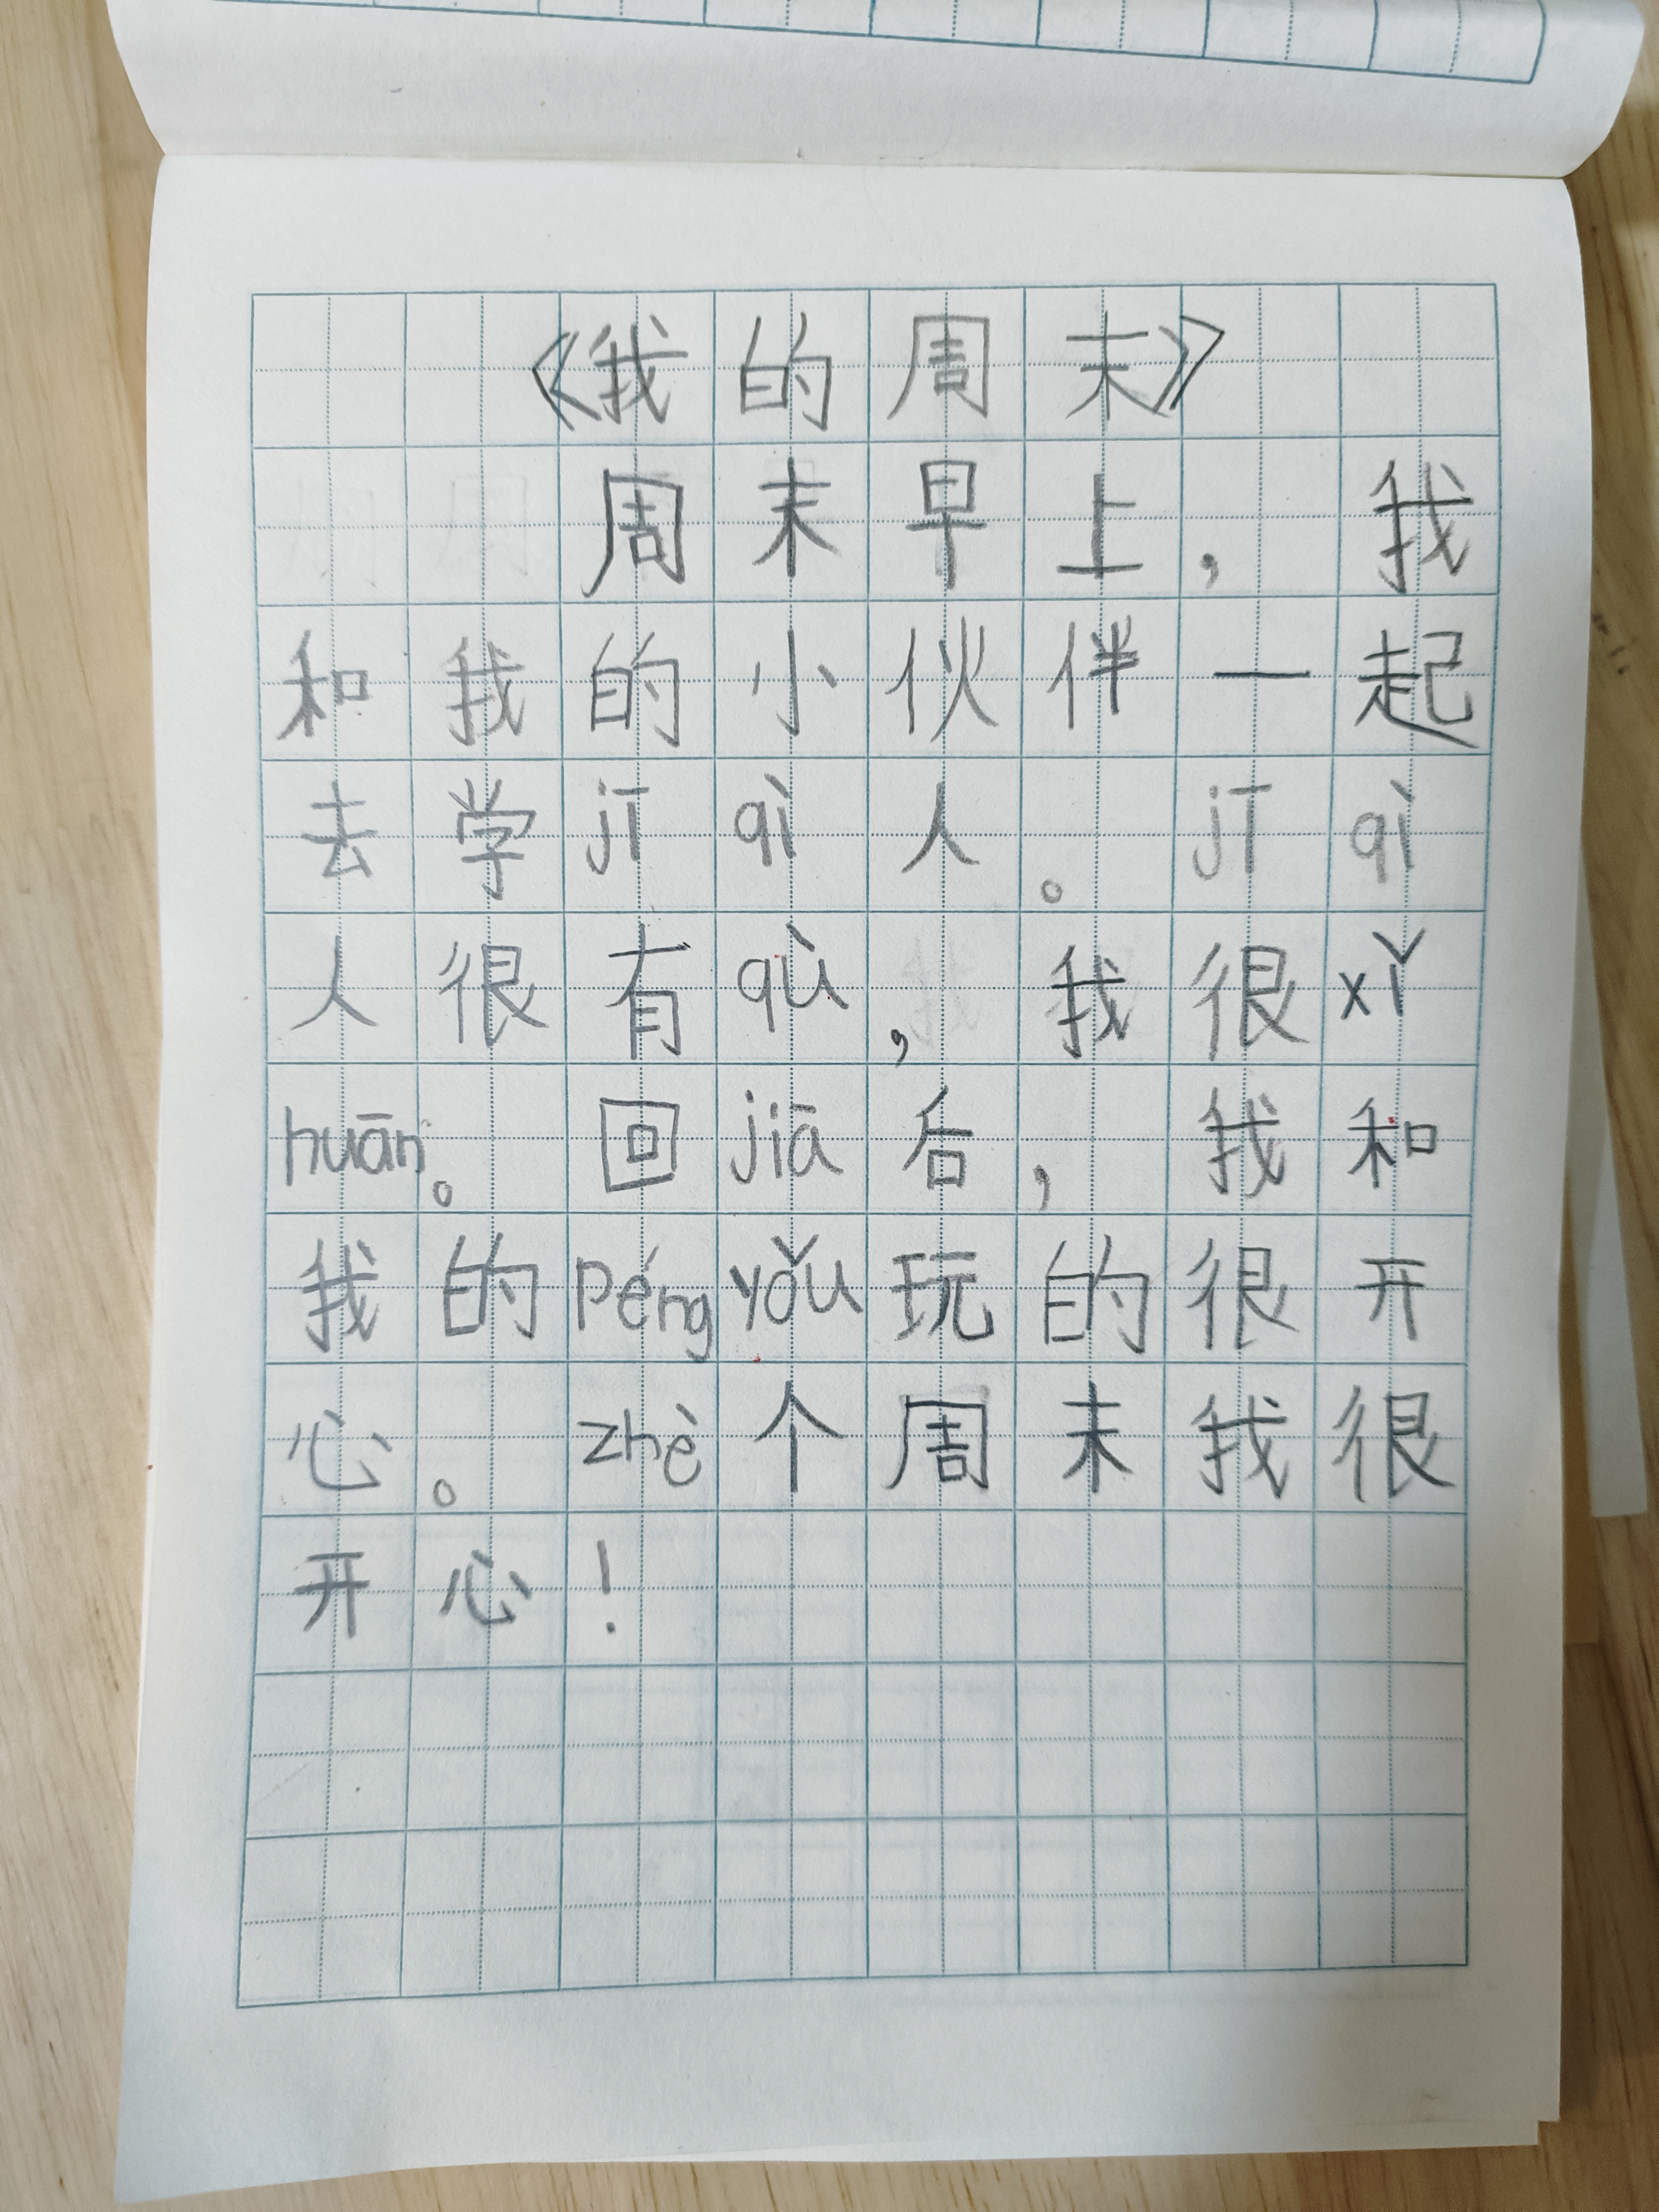 《我的周末》
周末早上，我
和我的小伙伴一起
去学jī qì人。jī qì
人很有qù，我很xǐ
huān。回jiā后，我和
我的péng yǒu玩的很开
心。zhè个周末我很
开心！